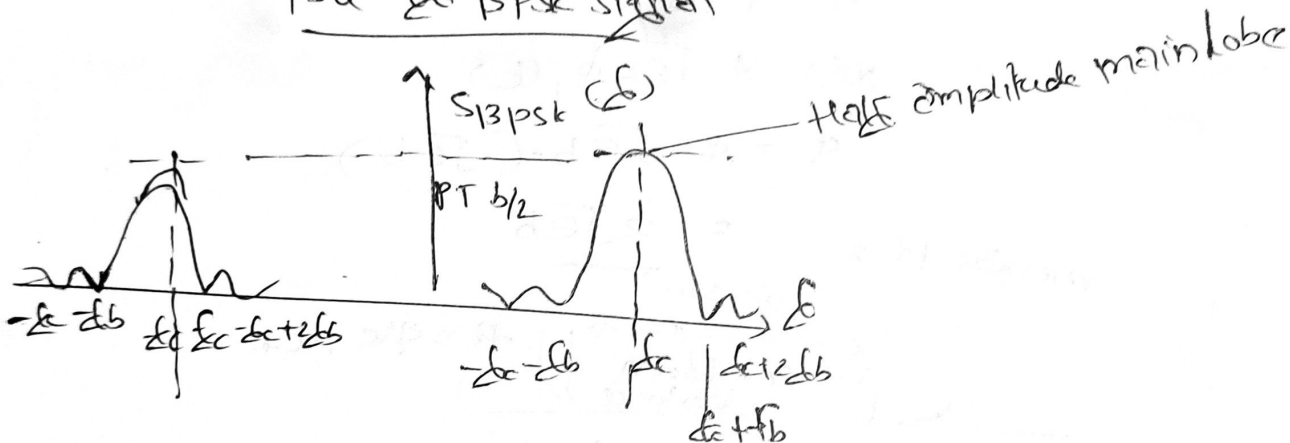 BPSK signal
SBPSK (f)
Half amplitude mainlobe
PT b/2
f
-fc -fb fc fc -fc+2fb
-fc -fb fc fc+2fb
fc+fb